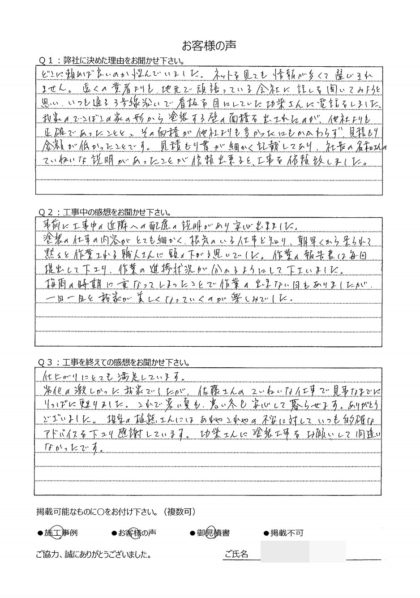 お客様の声
Q1：弊社に決めた理由をお聞かせ下さい。
どこに頼めば良いのか悩んでいました。ネットを見ても情報が多くて選びきれ
ません。遠くの業者よりも、地元で頑張っている会社に話しを聞いてみようと
思い、いつも通る3号線沿いで看板を目にしていた功栄さんに電話をしました。
我家のでこぼこの家の形から塗装する壁の面積を出されたのが、他社よりも
正確であったことと、その面積が他社よりも多かったにもかかわらず、見積もり
金額が低かったことです。見積もり書が細かく記載してあり、社長の
ていねいな説明があったことが信頼出来ると、工事を依頼致しました。
Q2：工事中の感想をお聞かせ下さい。
事前に工事中の近隣への配慮の説明があり安心出来ました。
塗装の仕事の内容がとても細かく、根気のいる仕事と知り、朝早くから来られて
黙々と作業される職人さんに頭の下がる思いでした。作業の報告書は毎日
提出して下さり、作業の進捗状況が分かるようにして下さいました。
梅雨の時期に重なってしまったことで作業の出来ない日もありましたが、
一日一日と我家が美しくなっていくのが楽しみでした。
Q3：工事を終えての感想をお聞かせ下さい。
仕上がりにとても満足しています。
劣化の激しかった我家でしたが、佐藤さんのていねいな仕事で見事なまでに
りっぱに甦りました。これで暑い夏も、寒い冬も安心して暮らせます。ありがとう
ございました。担当の さんには あれやこれやの不安に対していつも的確な
アドバイスを下さり感謝しています。功栄さんに塗装工事をお願いして間違い
なかったです。
掲載可能なものに○をお付け下さい。（複数可）
●施工事例 ●お客様の声 ●御見積書 ●掲載不可
ご協力、誠にありがとうございました。 ご氏名